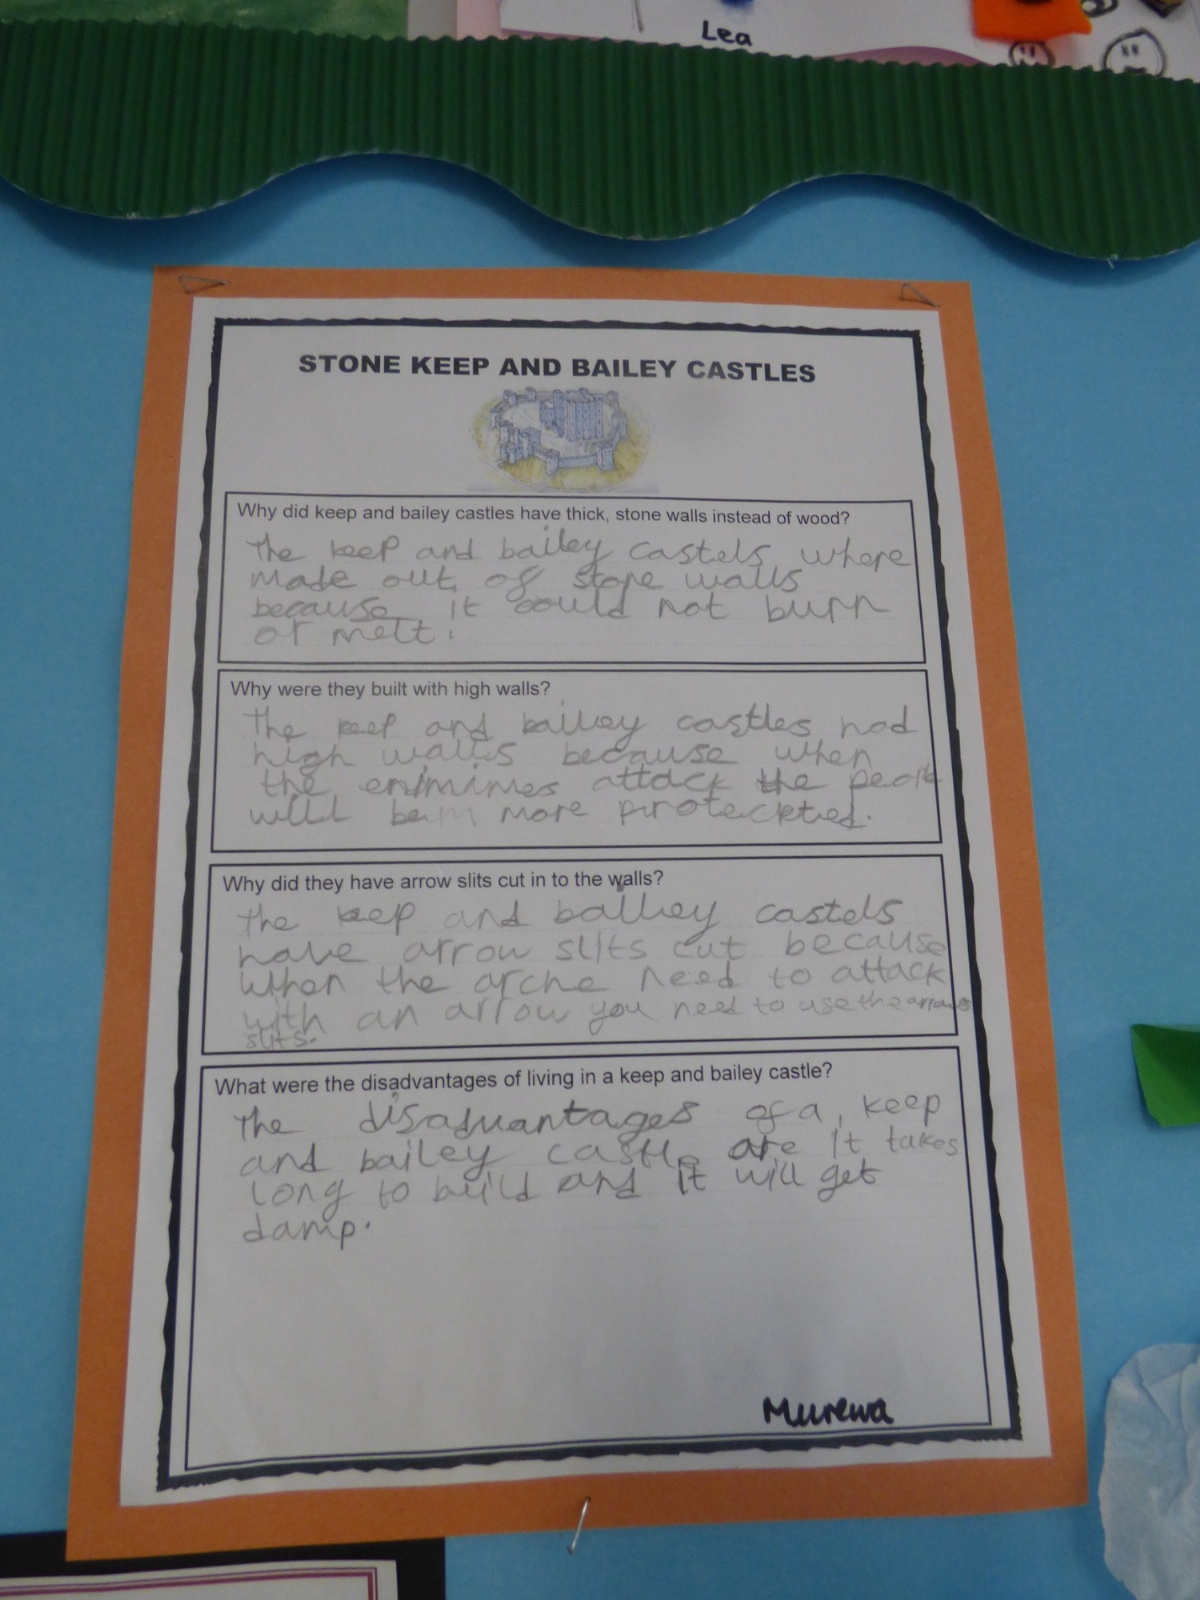 Lea
STONE KEEP AND BAILEY CASTLES
Why did keep and bailey castles have thick, stone walls instead of wood?
The keep and bailey castels where
made out of stone walls
because it could not burn
or melt.
Why were they built with high walls?
The keep and bailey castles had
high walls because when
the enimimes attack the people
will be more protecketed.
Why did they have arrow slits cut in to the walls?
The keep and bailey castels
have arrow slits cut because
when the arche need to attack
with an arrow you need to use the arrows
slits.
What were the disadvantages of living in a keep and bailey castle?
The disadvantages of a keep
and bailey castle are it takes
long to build and it will get
damp.
Murewa